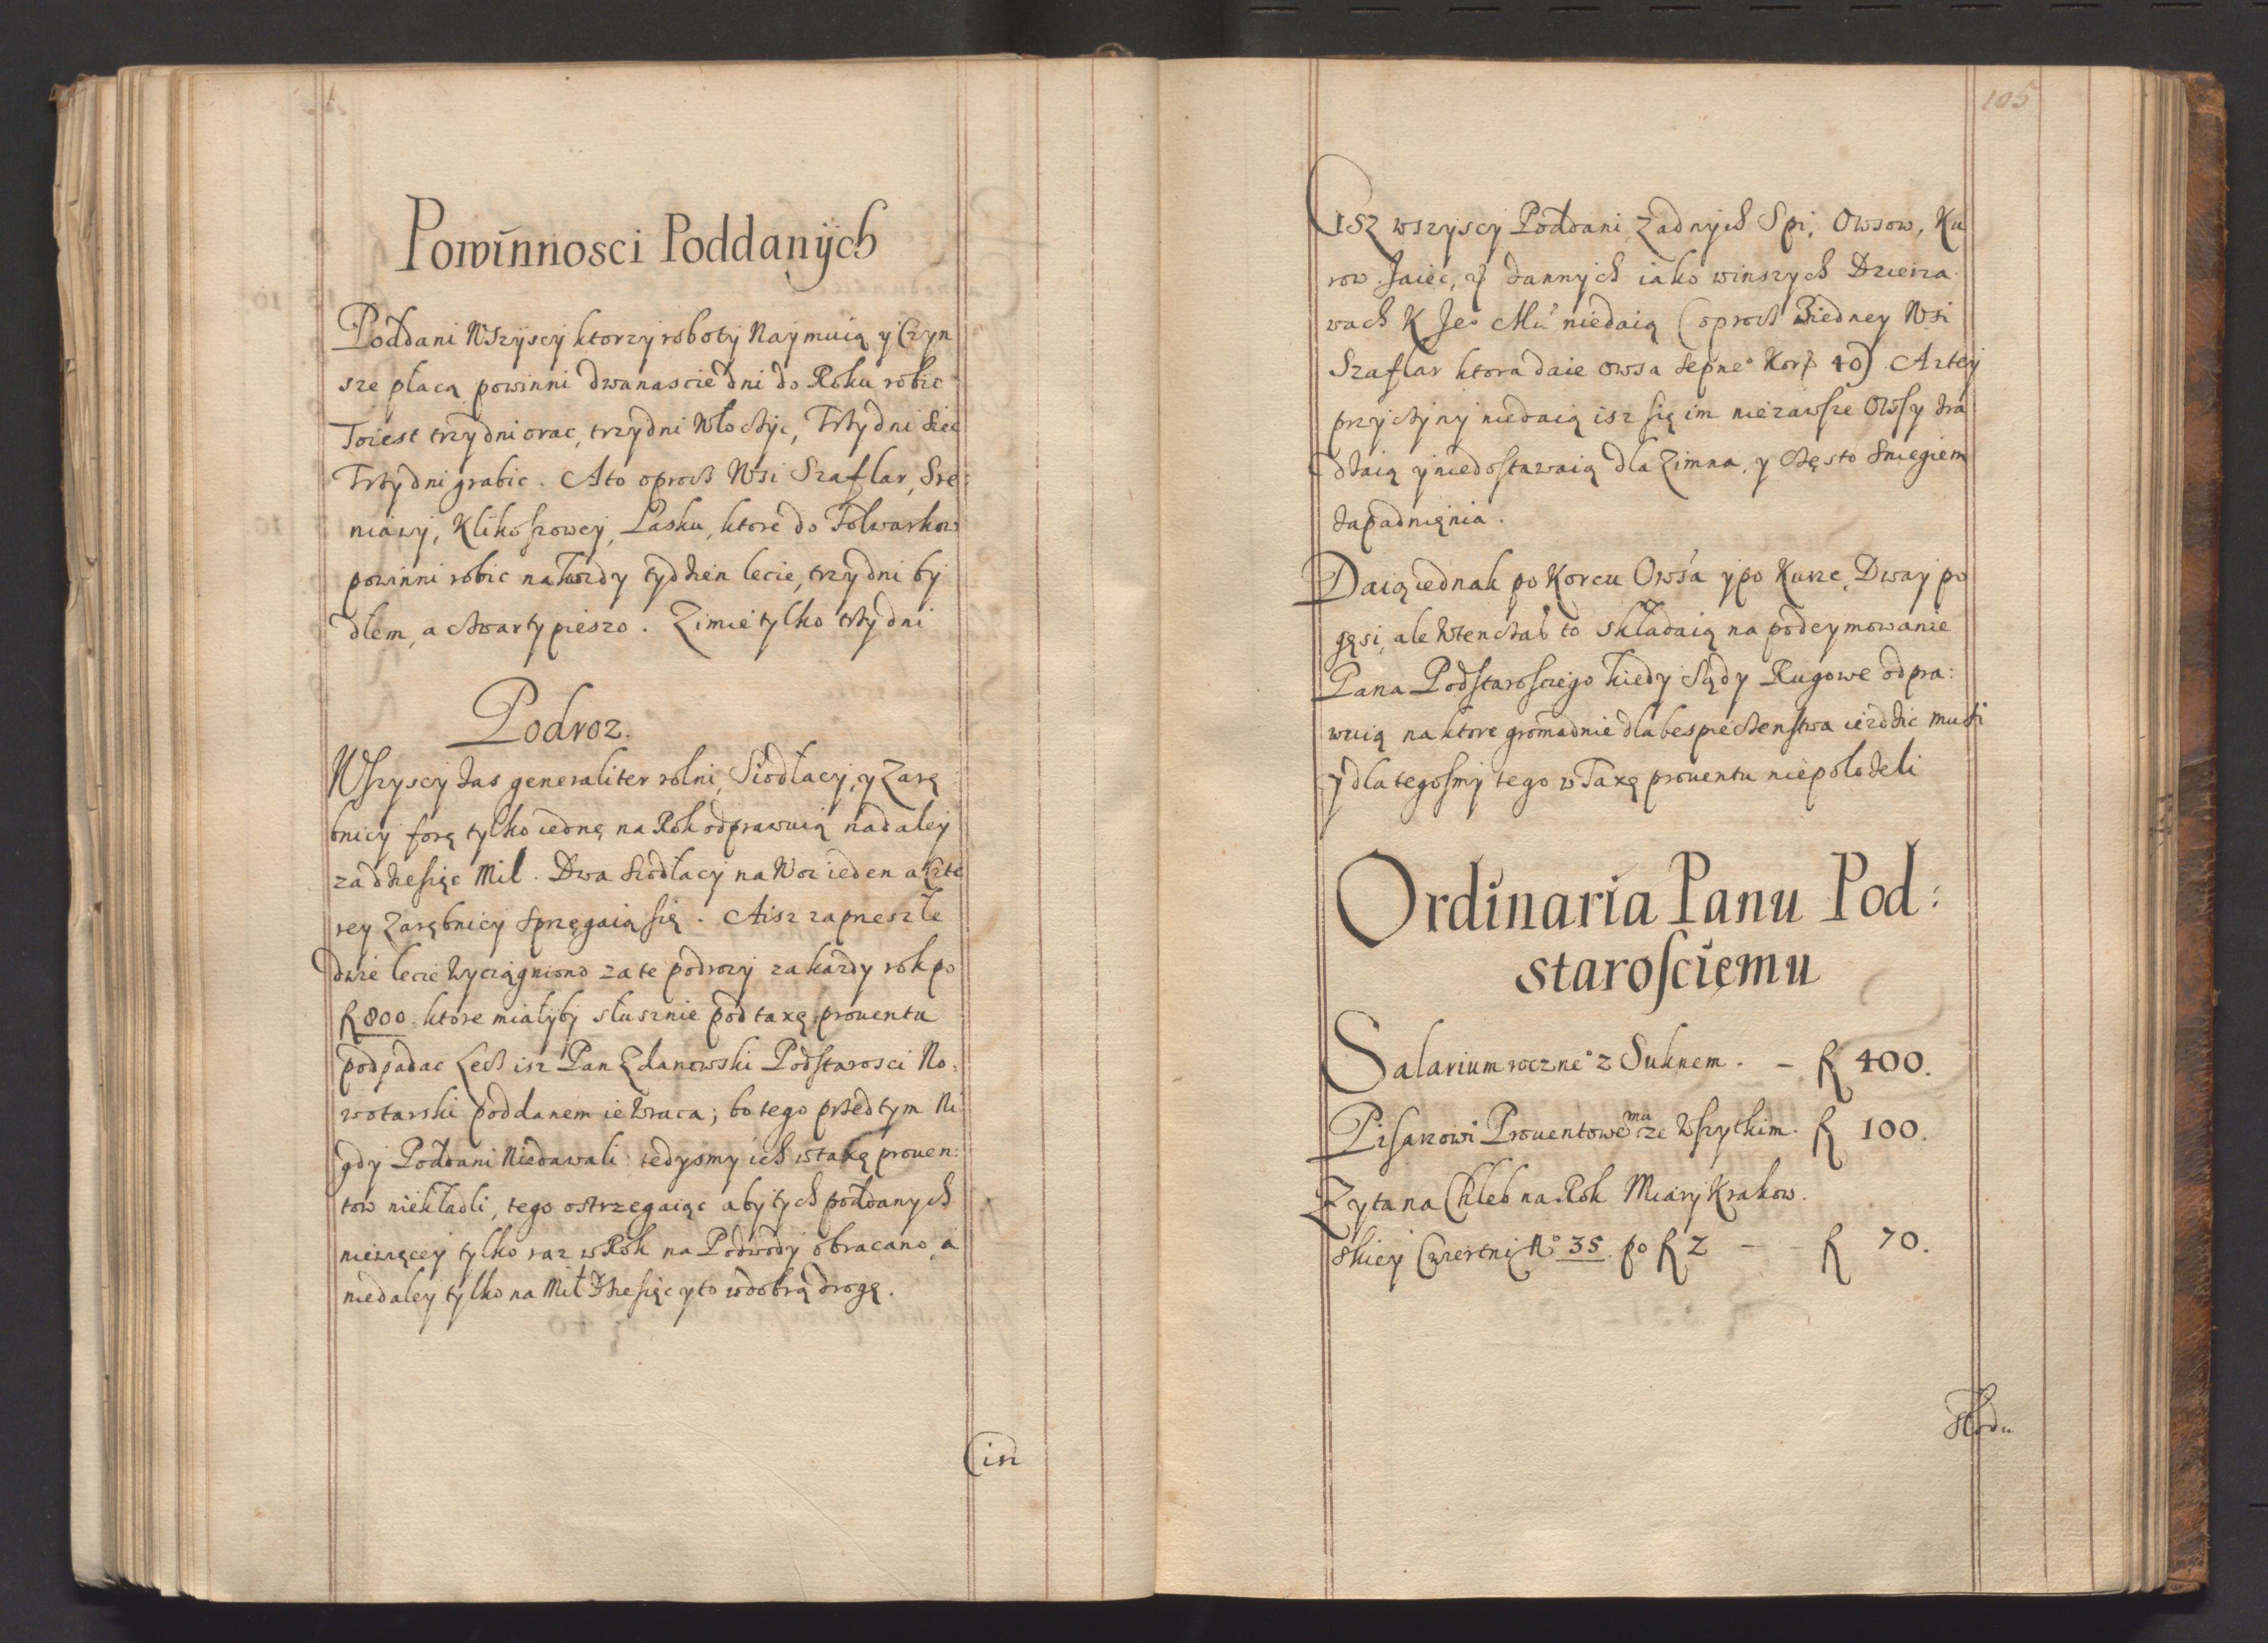 Powinnosci Poddanÿch
Poddani Wszÿscÿ ktorzÿ robotÿ Naÿmuią ÿ Czÿn
sze płacą powinni dwanascie dni do Roku robic
Toiest trzÿ dni orac, trzÿ dni Włoczÿc, Trzÿ dni siec
Trzÿ dni grabic. Ato oprocz Wsi Szaflar, Sre:
niawÿ, Klikoszoweÿ, Lasku, ktore do Folwarkow
powinni robic nakozdy tydzien lecie, trzÿ dni bÿ
dłem, a czwarty pieszo. Zimie tylko trzÿ dni
Podroz.
Wszyscÿ zas generaliter rolni, Siodłacÿ, y Zarę
bnicÿ forę tylko iednę na Rok odprawuią nadaleÿ
za dziesięc Mil. Dwa siodłacÿ na Woz ieden a czte
reÿ Zarębnicÿ sprzęgaią się. Aisz zapneszłe
dwie lecie wyciągniono za te podrozÿ za kazdy rok po
fl 800. ktore miałÿbÿ słusznie pod taxę prouentu
podpadac Lecz isz Pan Zdanowski Podstarosci No:
wotarski poddanem ie wraca; bo tego przed tym Ni
gdÿ Poddani Niedawali: tedysmÿ ich w taxę prouen:
tow niekładli, tego ostrzegaiąc abÿ tÿch poddanÿch
niewięceÿ tÿlko raz w Rok na Podwodÿ obracano, a
niedaleÿ tylko na Mil Dziesięc yto wdobrą drogę.
isz
105
ISZ wszÿscÿ Poddani Zadnÿch Spi, Owsow, Ku
row Jaiec, dannÿch iako winszÿch Dzierza
wach K Je° Mci niedaią (oprocz Biedney Wsi
Szaflar ktora daie owsa sepne° Kor 40) A zteÿ
przÿczÿnÿ niedaią isz się im niezawsze Owsy zra
dzaią ÿ niedostawaią dla Zimna, y często sniegiem
zapadnięnia.
Daią iednak po Korcu Owsa ÿ po Kurze, Dwaÿ po
gęsi, ale wtenczas to składaią na podeÿmowanie
Pana Podstarosciego kiedÿ Sądy Rugowe odpra:
wuią na ktore gromadnie dla bespieczenstwa iezdzic musi
ÿ dla tegosmÿ tego w Taxę prouentu niepołozeli
Ordinaria Panu Pod:
starosciemu
Salarium roczne° z Suknem. – fl 400.
Pisarzowi Prouentowemu ze Wszytkim. fl 100.
Zyta na Chleb na Rok Miarÿ Krakow.
skieÿ Cwiertni N° 35. po fl 2 – – fl 70.
Słodu